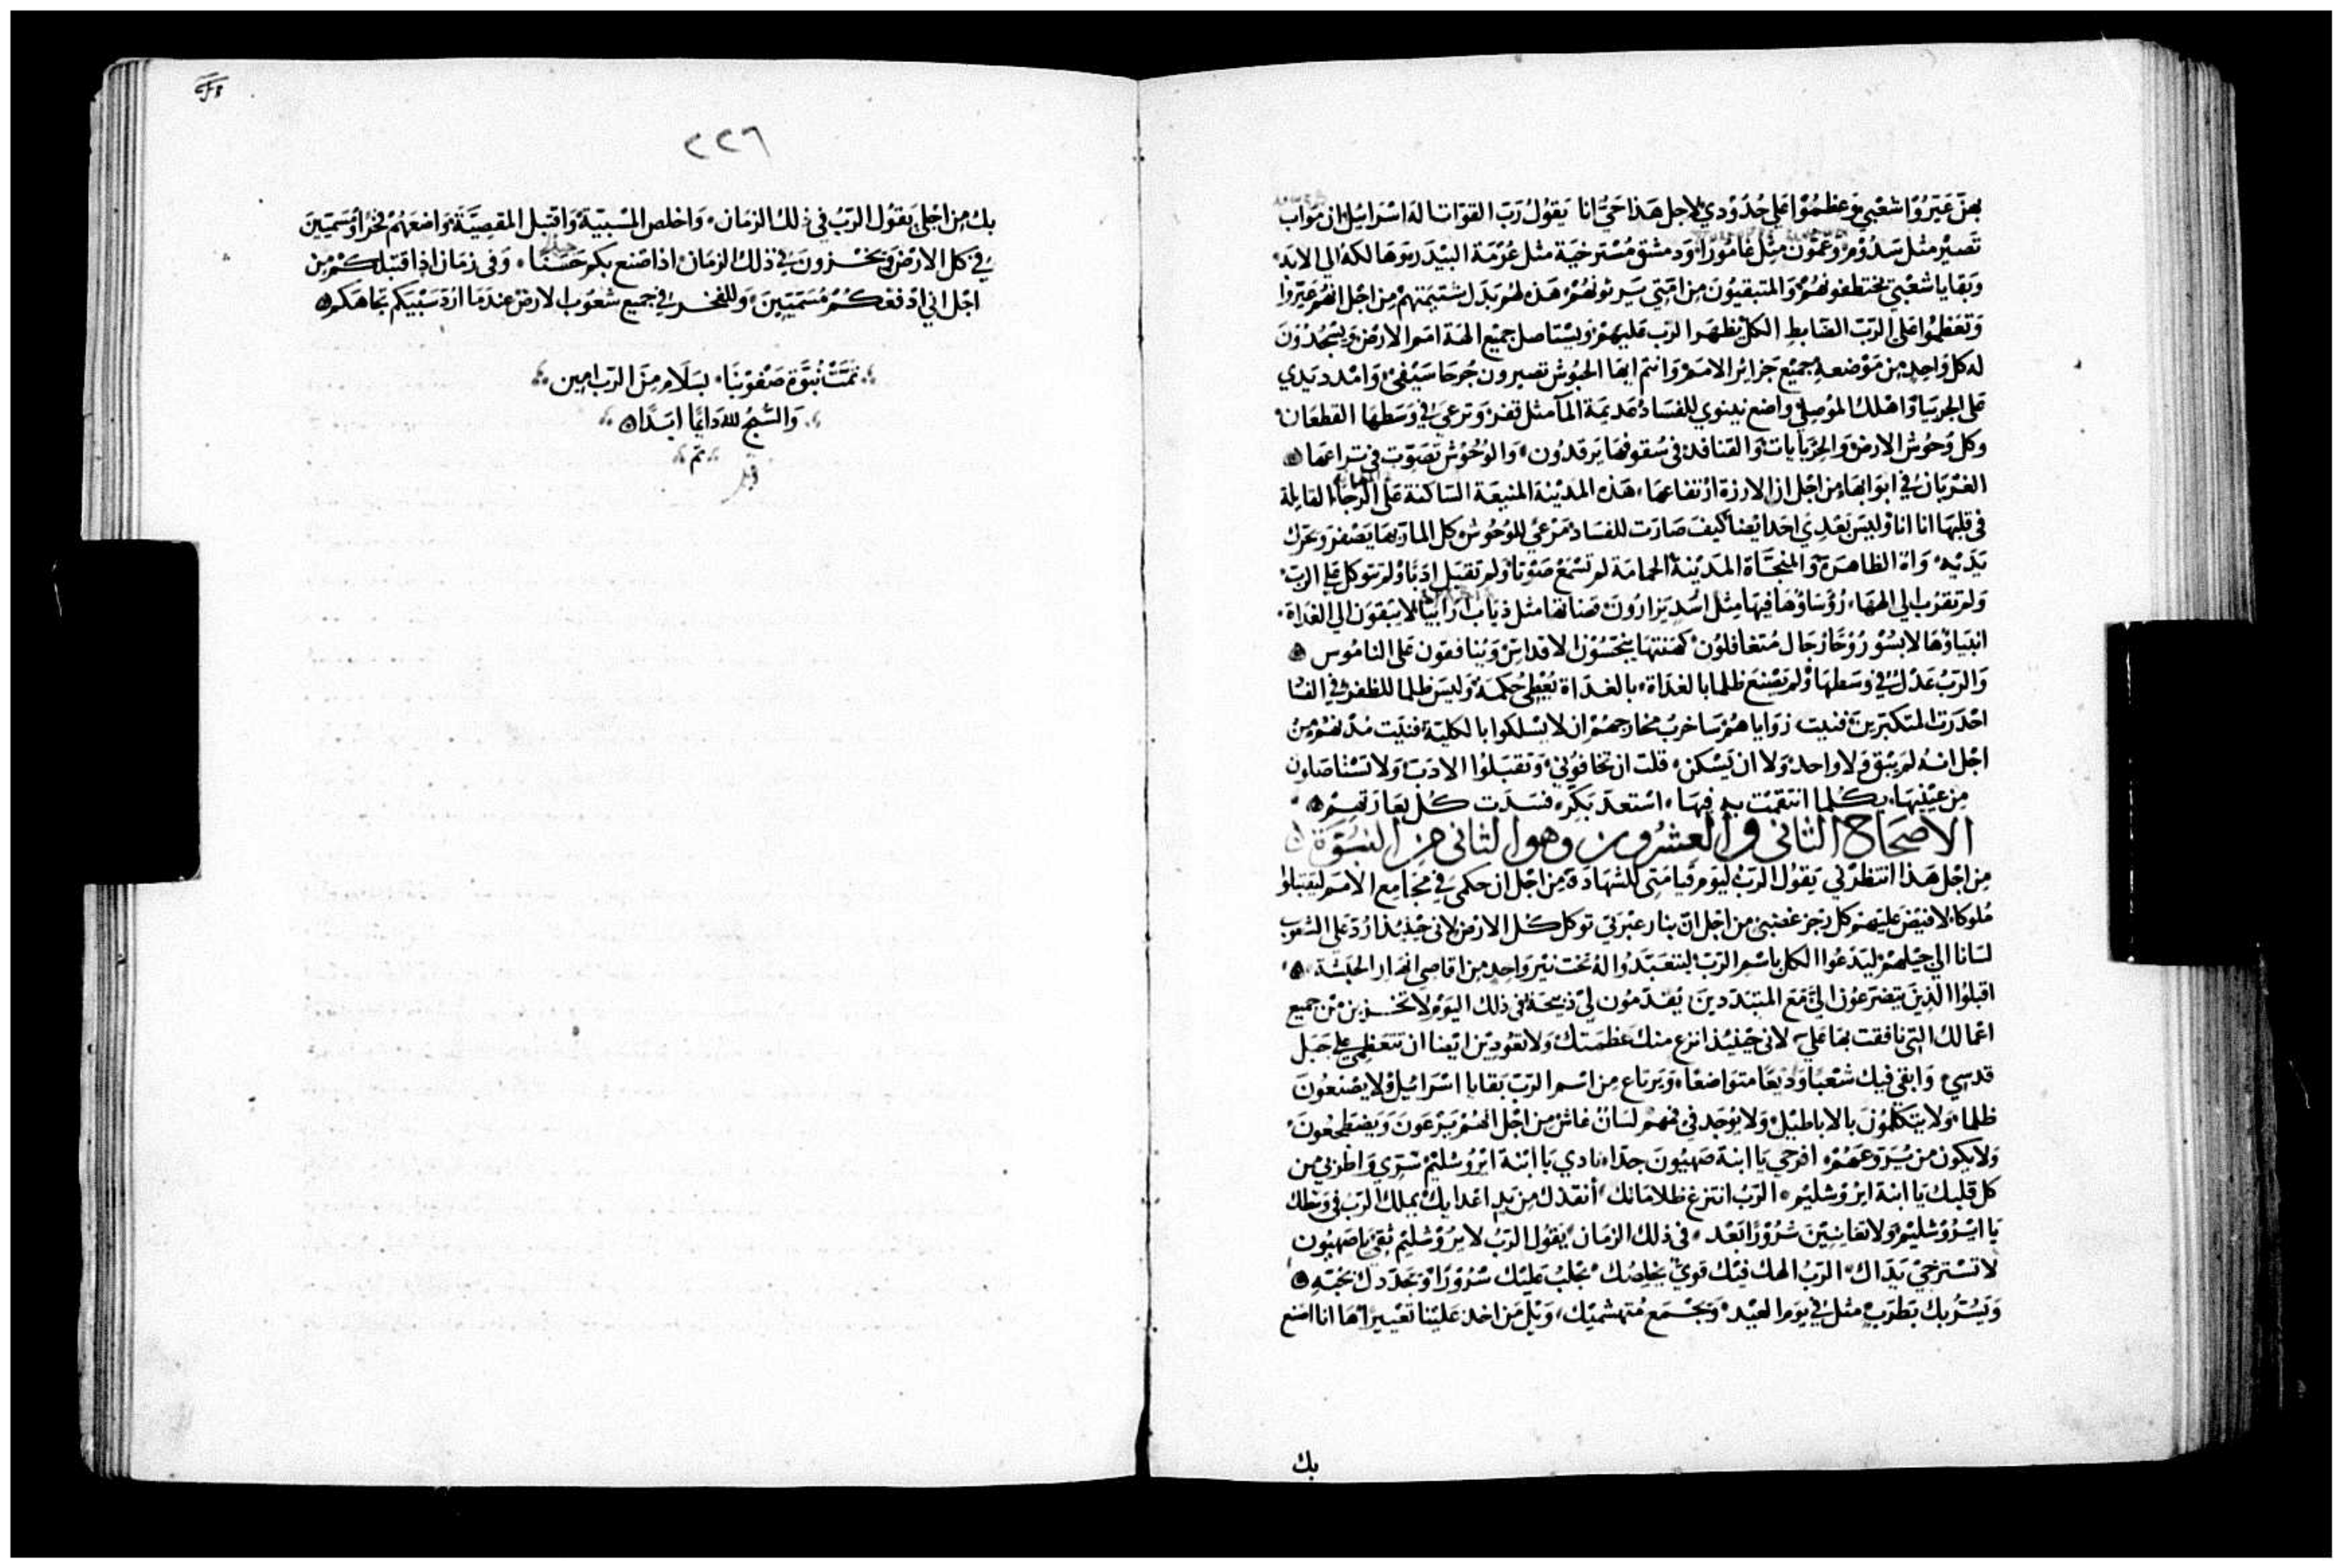 بهن عَيّروُا شعْبي وَعظمُوْا عَلي حُدُوْدي لاجل هَذا حَيُّ انا يَقوُل رَبّ القوَات اله اسْرَاييل ان مَواب
تَصيْر مثل سَدُوْمر وَعَمّون مثِل غامُورَا وَدمشق مُسْترخيَة مثل عُرْمَة البيْدَر وَهَالكة الي الابَد
وَبَقايا شعْبي يختطفونهُمْ وَالمتبقيُون مِن امّتي يَرثونهُمْ هَذه لهُم بَدل شتيْمتهمْ مِن اجْل انهُمْ عَيّروا
وَتعَظمُوا عَلى الرّبّ الضَابط الكل يَظهَر الرب عَليهمْ وَيسْتاصل جميْع الهة امَم الارْض وَيسْجُدُوْن
له كل وَاحِد مِن مَوْضعه جميْع جَزائر الامَمْ وَانتم ايهَا الحبُوش تصيرون جُرحَا سَيْفيْ وَامْدد يَدي
عَلى الجربيَا وَاهْلك المُوْصِلي وَاضع نينوي للفسَاد عَديمَة المآ مثل قفر وَترعَي في وَسَطهَا القطعَان
وكل وُحُوش الارض وَالحِرْبايات وَالقنافد في سُقوفهَا يَرقدُون وَالوُحُوْش تصَوّت في تراعهَا
الغرْبَان في ابوَابهَا مِن اجْل ان الارزة ارْتفاعهَا هَذه المَديْنة المنيعَة السَاكنة عَلى الرجَا القايلة
في قلبهَا انا انا وَليسَ بَعْدي احَد ايْضا كيْف صَارَت للفسَاد مَرْعَي للوُحُوش كل المَار بهَا يَصْفر وَيحَرّك
يَدَيْه وَاه الظاهرَة وَالمنجّاة المَديْنة الحمامَة لم تسْمَع صَوْتا وَلم تقبَل ادَبًا وَلم تتوكل على الربّ
وَلم تقرُب الي الهها رُؤسَاؤُهَا فيهَا مِثل اسُد يَزارُون قضاتها مثل ذياب ارَابيَا لا يبْقوْن الي الغَدَاة
انبيَاؤهَا لابسُوْ رُوْحًا رجَال مُتغافلوُن كهَنتهَا ينجّسُوْن الاقداسْ وَينافقون عَلى النامُوس
وَالرَبُّ عَدْل في وَسَطهَا وَلم يَصْنع ظلما بالغَداة بالغدَاة يُعْطِي حُكمَه وَليسَ ظلما للظفر في الفسَا
احْدَرت المتكبّرين فنيت زوَاياهمْ سَاخرب مخارجهُمْ ان لا يسْلكوا بالكليّة فنيت مُدُنهُمْ مِن
اجْل انه لم يَبْق وَلا واحد وَلا ان يَسْكن قلت ان تخافوُني وَتقبَلوُا الادبَ وَلا تسْتاصَلون
مِن عيْنيهَا بكلما انتقمْت به فيهَا اسْتعدّ بَكّر فسَدت كُل بعَارَتهمْ
الاصحَاح الثاني والعشرُون وهو الثاني من النبُوّة
مِن اجْل هَذا انتظرْني يَقوُل الرَبّ ليَوْم قيامَتي للشهَادة مِن اجْل ان حكمي في مجَامِع الامَم ليقبَلوا
مُلوكا لافيْض عَليْهمْ كل رجْز غضبي من اجل ان بنار غيْرَتي توكل كل الارْض لاني حيْنيْذ ارُدّ عَلى الشعُوب
لسَانا الي جيْلهمْ ليَدعُوا الكل باسْم الرَبّ ليتعَبّدُوا له تحت نيْر وَاحِد مِن اقاصي انهَار الحبَشة
اقبلوُا الذِينَ يَتضرّعُوْن الي مَعَ المتبَدّدينَ يُقدّمُون لي ذبيْحَة في ذلك اليَوْم لا تخزين من جميع
اعْمالك التي نافقت بهَا عَليَّ لاني حيْنيْذ انزع منك عَظمَتك وَلا تعُودين ايْضا ان تتعَظمي على جَبَل
قدسي وَابقي فيك شعْبًا وَديْعًا متوَاضعًا وَيَرتاع مِن اسْم الرَبّ بَقايا اسْرَائيل وَلا يَصْنعُون
ظلما وَلا يتكلمُوْن بالاباطيْل وَلا يوُجَد في فمهم لسَان غاش مِن اجْل انهمْ يَرْعَوْن وَيَضطجعُون
وَلا يكون من يُرَوّعَهُمْ افرحي يَا ابنة صَهيُون جدّا نادي يَا ابْنة ايرُوْشليْم سُرّي وَاطربي من
كل قلبك يَا ابنة ايرُوْشليْم الرَبّ انتزع ظلامَاتك انقدك مِن يَد اعْدايك يملك الرَبّ في وَسْطك
يَا ايْرُوْشليْم وَلا تعَاينيْن شرُوْرًا بَعْد في ذلك الزمَان يَقوُل الرَبّ لايْرُوْشليْم ثقي يَا صَهيُون
لا تسْترخيْ يَدَاك الرَبّ الهك فيْك قويّ يخلصُك يجلبُ عَليْك سُرُوْرًا وَيجَدّدك بحُبّه
وَيُسَرُّ بك بَطرَبٍ مثل في يَوم العيْد وَيجْمَع مُتهَشميك وَيْل مَن اخذ عَليْنا تعْييْرًا هَا انا اصْنع
بك
٢٢٦
بك مِن اجْلك يَقوُل الرَبّ في ذلك الزمَان وَاخلص المسْبيّة وَاقبَل المقصيَّة وَاضعهُمْ فخرًا وَمُسَمّيْنَ
في كل الارْض وَيخزون في ذلك الزمَان اذا صْنع بكم حَسَنًا وَفي زمَان اذا قبَلكمْ مِن
اجْل اني ادْفعكُمْ مُسَمّيينَ وَللفخر في جميع شعُوب الارض عندمَا ارُدّ سَبْيَكم تجَاهَكم
تمَّتْ نُبوّة صَفوْنيَا بسَلَام مِنَ الرَبّ امِين
وَالسُّبحُ لله دَايمًا ابَدًا
تم